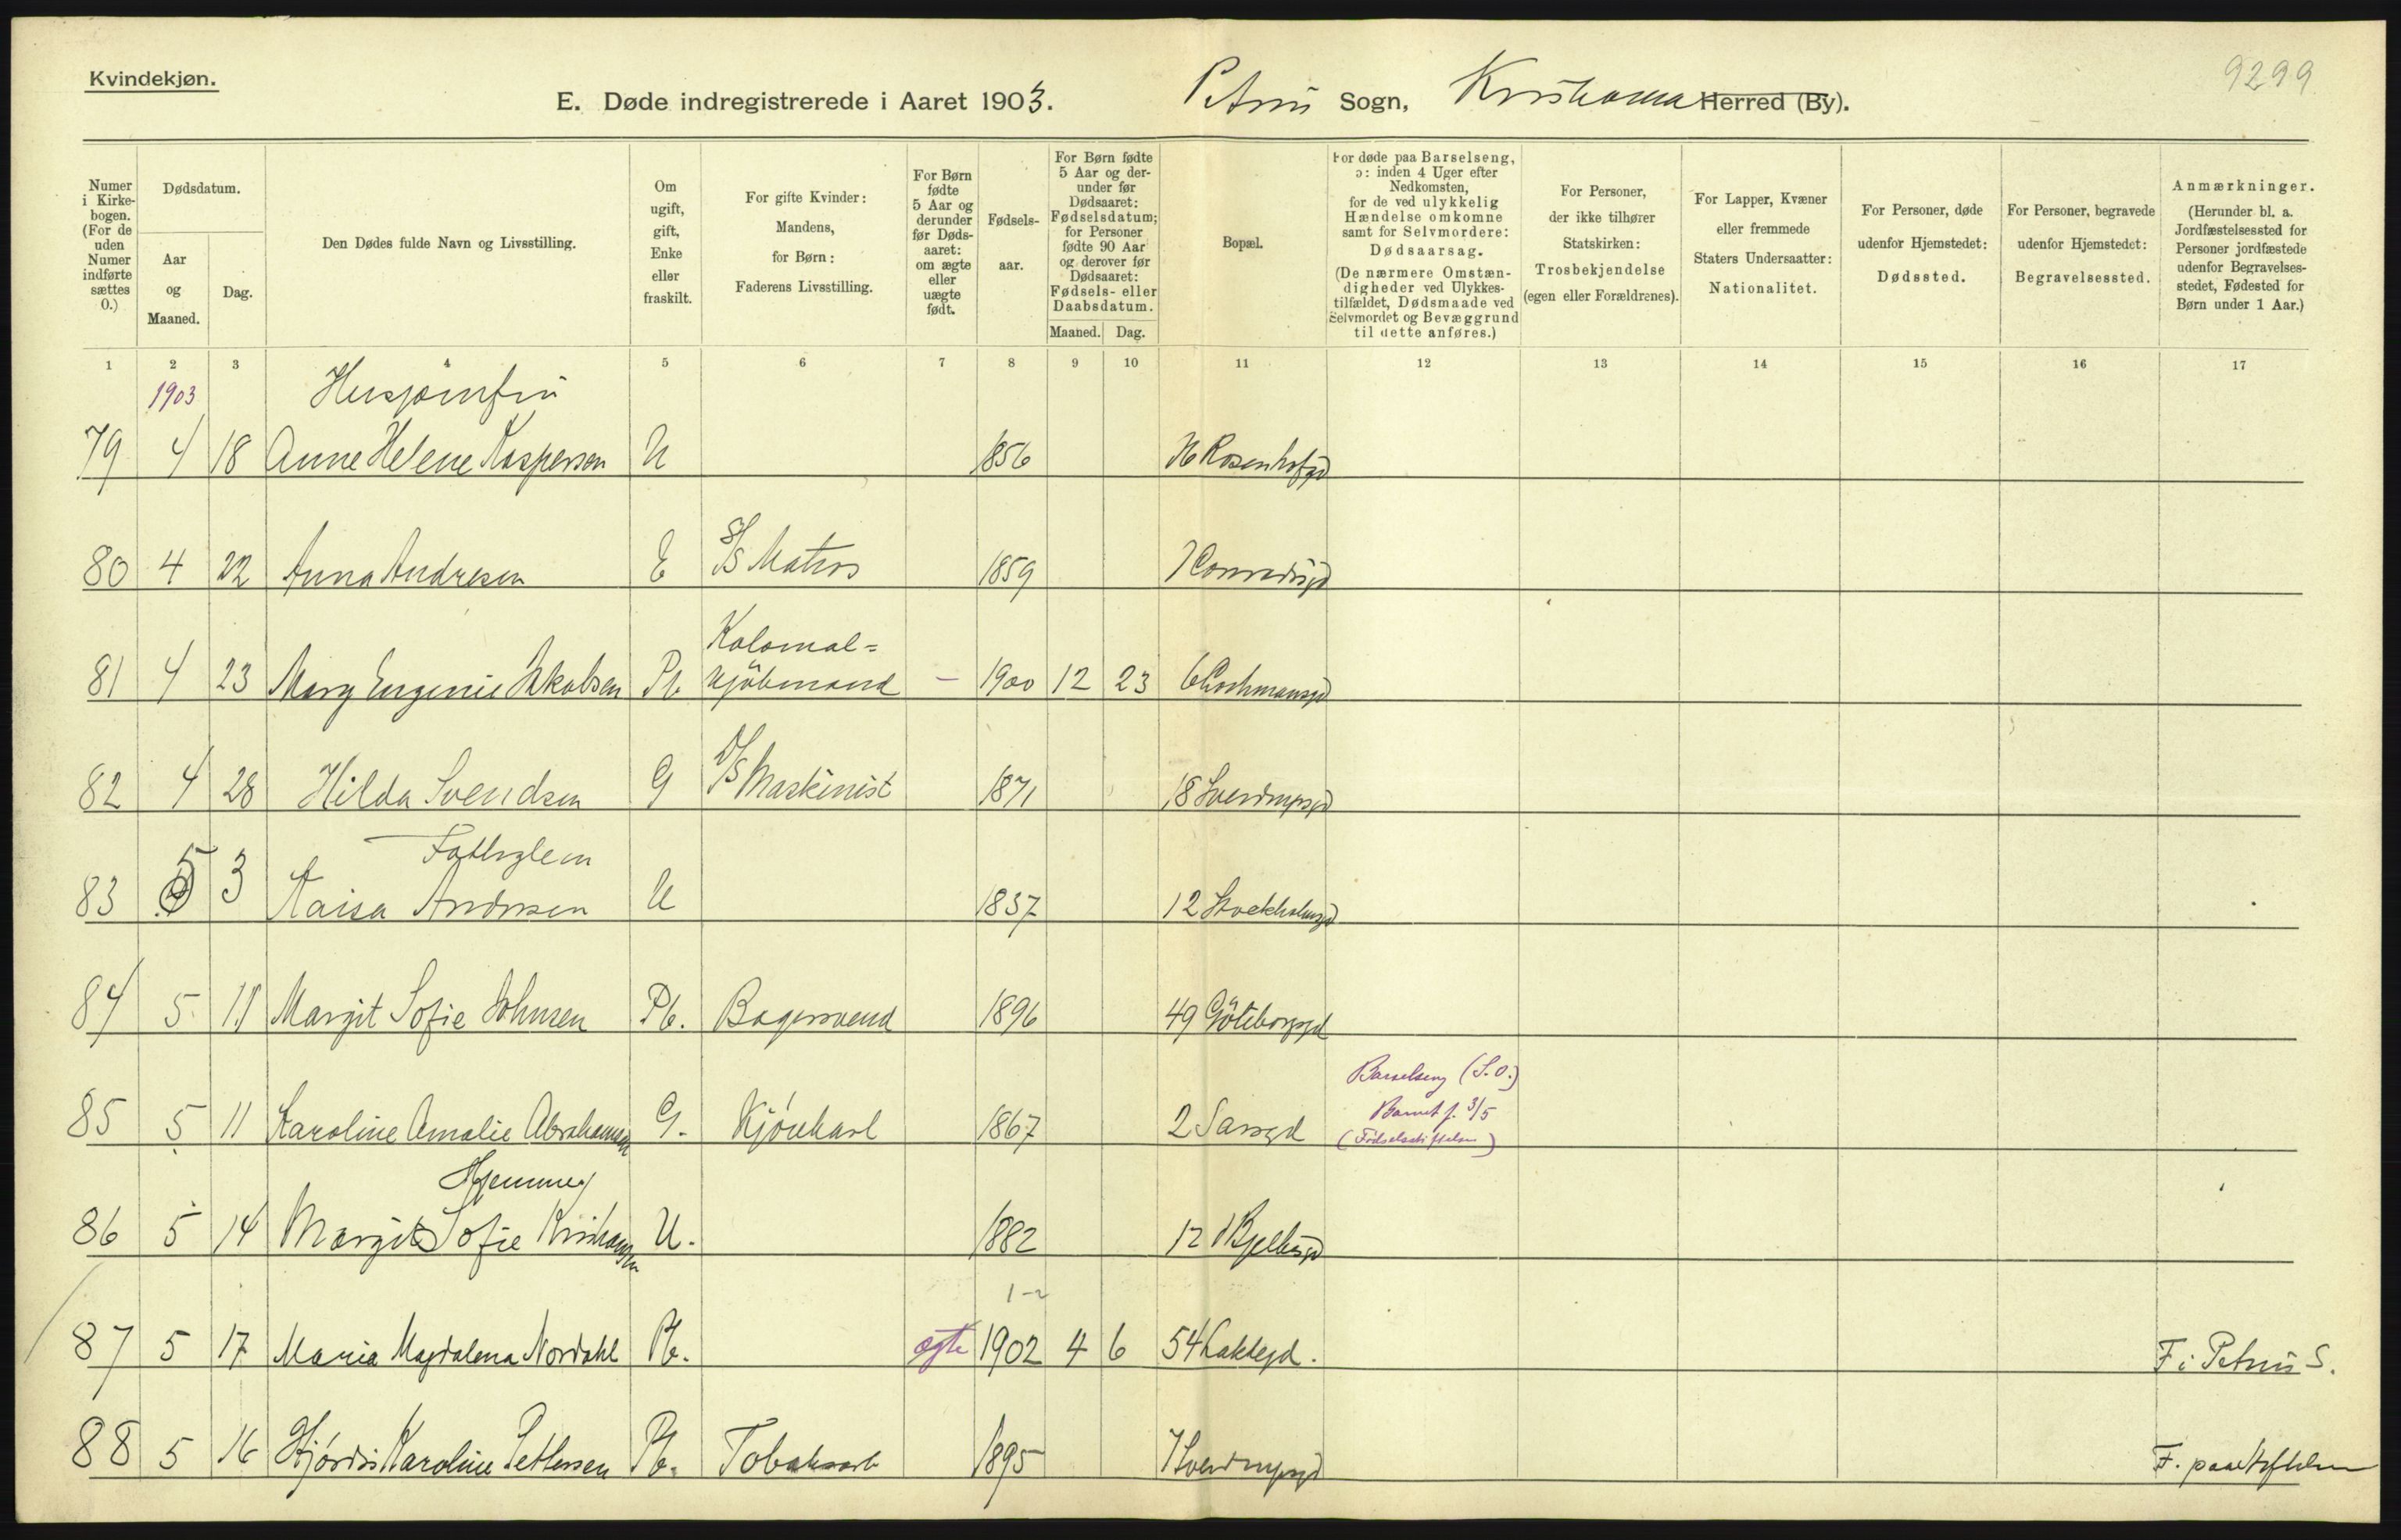 Kvindekjøn.
9299
E. Døde indregistrerede i Aaret 1903. Petrus Sogn, Kristiania Herred (By).
Numer
i Kirke-
bogen.
(For de
uden
Numer
indførte
sættes
0.)
Dødsdatum.
Aar
og
Maaned.
Dag.
Den Dødes fulde Navn og Livsstilling.
Om
ugift,
gift,
Enke
eller
fraskilt.
For gifte Kvinder:
Mandens,
for Børn:
Faderens Livsstilling.
For Børn
fødte
5 Aar og
derunder
før Døds-
aaret:
om ægte
eller
uægte
født.
Fødsels-
aar.
For Børn fødte
5 Aar og der-
under før
Dødsaaret:
Fødselsdatum;
for Personer
fødte 90 Aar
og derover før
Dødsaaret:
Fødsels- eller
Daabsdatum.
Maaned. Dag.
Bopæl.
For døde paa Barselseng,
ɔ: inden 4 Uger efter
Nedkomsten,
for de ved ulykkelig
Hændelse omkomne
samt for Selvmordere:
Dødsaarsag.
(De nærmere Omstæn-
digheder ved Ulykkes-
tilfældet, Dødsmaade ved
Selvmordet og Bevæggrund
til dette anføres.)
For Personer,
der ikke tilhører
Statskirken:
Trosbekjendelse
(egen eller Forældrenes).
For Lapper, Kvæner
eller fremmede
Staters Undersaatter:
Nationalitet.
For Personer, døde
udenfor Hjemstedet:
Dødssted.
For Personer, begravede
udenfor Hjemstedet:
Begravelsessted.
Anmærkninger.
(Herunder bl. a.
Jordfæstelsessted for
Personer jordfæstede
udenfor Begravelses-
stedet, Fødested for
Børn under 1 Aar.)
1 2 3 4 5 6 7 8 9 10 11 12 13 14 15 16 17
1903 Husjomfru
79 4 18 Anne Helene Kaspersen U 1856 16 Rosenhofgd
80 4 22 Anna Andresen E S/S Matros 1859 7 Conradisgd
Kolonial=
81 4 23 Mary Eugenie Jakobsen Pb Kjøbmand – 1900 12 23 6 Rathmansgd
82 4 28 Hilda Svendsen G D/S Maskinist 1871 18 Sverdrupsgd
Fattiglem
83 5 3 Kaisa Andersen U 1837 12 Stockholmsgd
84 5 11 Margit Sofie Johnsen Pb. Bagersvend 1896 49 Göteborggd
Barselseng (S.O.)
85 5 11 Karoline Amalie Abrahamsen G. Kjørekarl 1867 2 Sarsgd Barnet f. 3/5
(Fødselsstiftelsen)
Hjemmev
86 5 14 Margit Sofie Kristiansen U. 1882 12 Bjelkesgd
1-2
87 5 17 Maria Magdalena Nordahl Pb. ægte 1902 4 6 54 Lakkegd. F i Petrus S.
88 5 16 Hjørdis Karoline Pettersen Pb. Tobaksarb 1895 7 Sverdrupsgd F. paa Stiftelsen